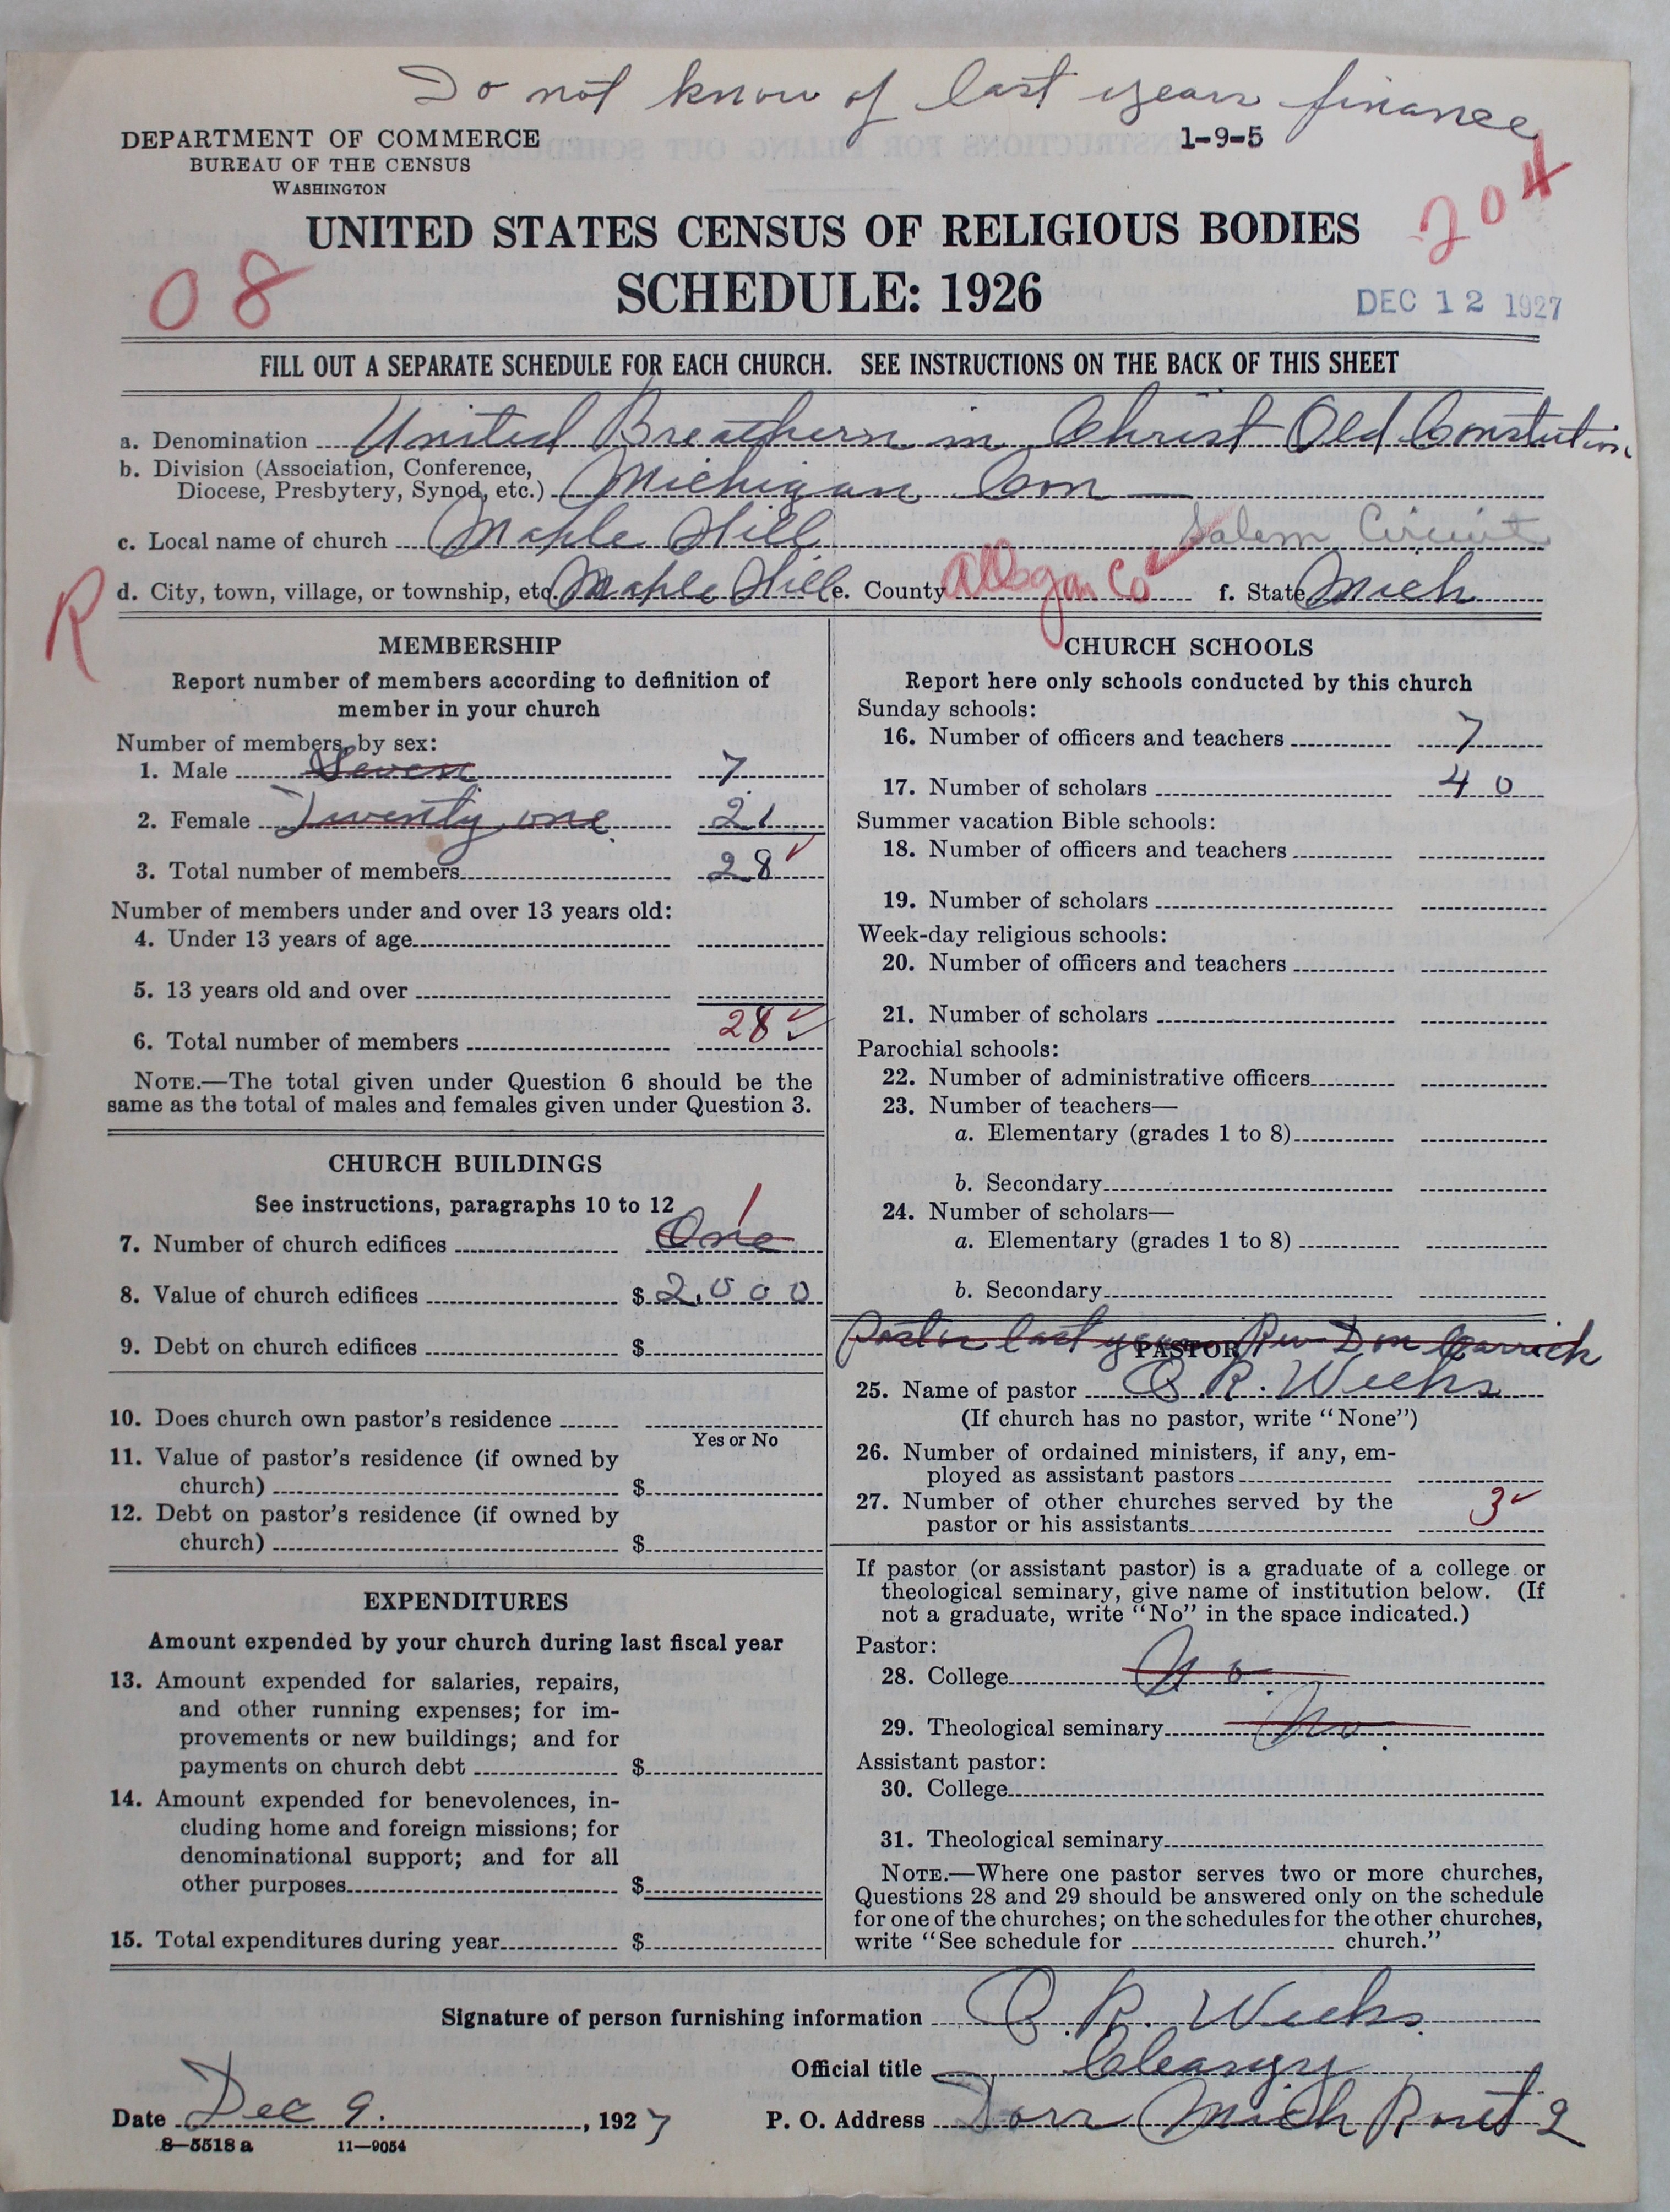 Do not know of last years finance
DEPARTMENT OF COMMERCE
BUREAU OF THE CENSUS
WASHINGTON
1-9-5
204
UNITED STATES CENSUS OF RELIGIOUS BODIES
08
SCHEDULE: 1926
DEC 12 1927
FILL OUT A SEPARATE SCHEDULE FOR EACH CHURCH. SEE INSTRUCTIONS ON THE BACK OF THIS SHEET
a. Denomination United Breathern in Christ Old Constution
b. Division (Association, Conference,
Diocese, Presbytery, Synod, etc.) Michigan Con
c. Local name of church Maple Hill Salem Circuit
R
d. City, town, village, or township, etc. Maple Hill e. County Allegan Co f. State Mich
MEMBERSHIP
Report number of members according to definition of
member in your church
Number of members, by sex:
1. Male Seven 7
2. Female Twenty one 21
3. Total number of members 28
Number of members under and over 13 years old:
4. Under 13 years of age
5. 13 years old and over
6. Total number of members 28
NOTE.—The total given under Question 6 should be the
same as the total of males and females given under Question 3.
CHURCH BUILDINGS
See instructions, paragraphs 10 to 12
7. Number of church edifices One 1
8. Value of church edifices $2,000
9. Debt on church edifices $
10. Does church own pastor's residence
Yes or No
11. Value of pastor's residence (if owned by
church) $
12. Debt on pastor's residence (if owned by
church) $
EXPENDITURES
Amount expended by your church during last fiscal year
13. Amount expended for salaries, repairs,
and other running expenses; for im-
provements or new buildings; and for
payments on church debt $
14. Amount expended for benevolences, in-
cluding home and foreign missions; for
denominational support; and for all
other purposes $
15. Total expenditures during year $
CHURCH SCHOOLS
Report here only schools conducted by this church
Sunday schools:
16. Number of officers and teachers 7
17. Number of scholars 40
Summer vacation Bible schools:
18. Number of officers and teachers
19. Number of scholars
Week-day religious schools:
20. Number of officers and teachers
21. Number of scholars
Parochial schools:
22. Number of administrative officers
23. Number of teachers—
a. Elementary (grades 1 to 8)
b. Secondary
24. Number of scholars—
a. Elementary (grades 1 to 8)
b. Secondary
Pastor last year Rev Don Carrick
PASTOR
25. Name of pastor O. R. Weeks
(If church has no pastor, write "None")
26. Number of ordained ministers, if any, em-
ployed as assistant pastors
27. Number of other churches served by the
pastor or his assistants 3
If pastor (or assistant pastor) is a graduate of a college or
theological seminary, give name of institution below. (If
not a graduate, write "No" in the space indicated.)
Pastor:
28. College No
29. Theological seminary No
Assistant pastor:
30. College
31. Theological seminary
NOTE.—Where one pastor serves two or more churches,
Questions 28 and 29 should be answered only on the schedule
for one of the churches; on the schedules for the other churches,
write "See schedule for church."
Signature of person furnishing information O. R. Weeks
Official title Cleargy
Date Dec 9. , 1927 P. O. Address Dorr Mich Rout 2
8—5518 a 11—9054